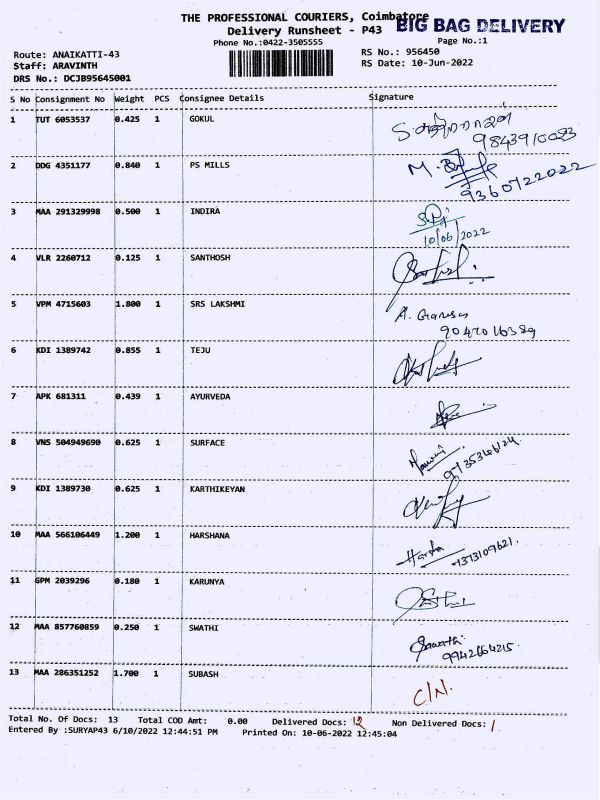 THE PROFESSIONAL COURIERS, Coimbatore
BIG BAG DELIVERY
Delivery Runsheet - P43
Phone No.:0422-3505555
Page No.:1
Route: ANAIKATTI-43
RS No.: 956450
Staff: ARAVINTH
RS Date: 10-Jun-2022
DRS No.: DCJB95645001
S No Consignment No Weight PCS Consignee Details Signature
1 TUT 6053537 0.425 1 GOKUL
9843910083
2 DDG 4351177 0.840 1 PS MILLS
9360722022
3 MAA 291329998 0.500 1 INDIRA
10/06/2022
4 VLR 2260712 0.125 1 SANTHOSH
5 VPM 4715603 1.800 1 SRS LAKSHMI
A. Ganesan
9047016389
6 KDI 1389742 0.855 1 TEJU
7 APK 681311 0.439 1 AYURVEDA
8 VNS 504949690 0.625 1 SURFACE
9 KDI 1389730 0.625 1 KARTHIKEYAN
10 MAA 566106449 1.200 1 HARSHANA
11 GPM 2039296 0.180 1 KARUNYA
12 MAA 857760859 0.250 1 SWATHI
13 MAA 286351252 1.700 1 SUBASH
C/N.
Total No. Of Docs: 13 Total COD Amt: 0.00 Delivered Docs: 12 Non Delivered Docs: 1
Entered By :SURYAP43 6/10/2022 12:44:51 PM Printed On: 10-06-2022 12:45:04